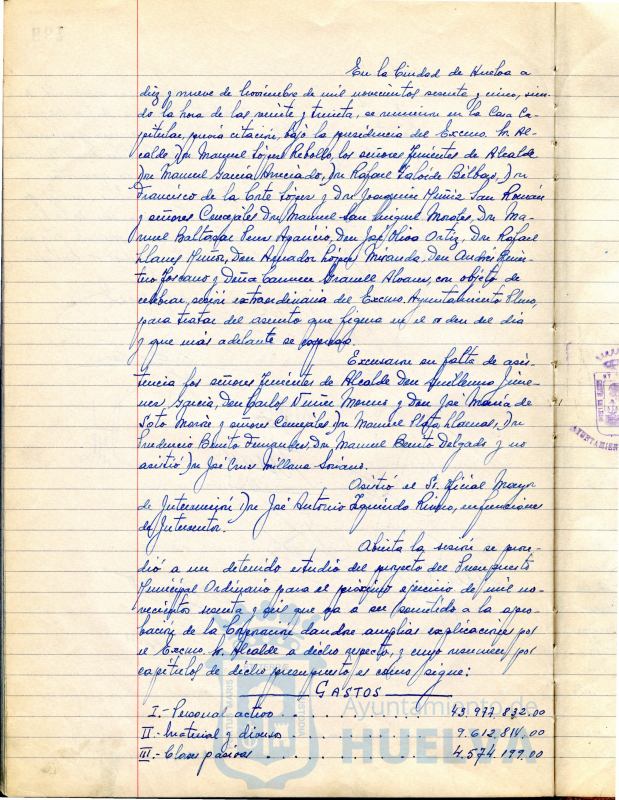 En la Ciudad de Huelva a
diez y nueve de Noviembre de mil novecientos sesenta y cinco, sien-
do la hora de las veinte y treinta, se reunieron en la Casa Ca-
pitular, previa citación, bajo la presidencia del Excmo. Sr. Al-
calde Don Manuel López Rebollo, los señores Tenientes de Alcalde
Don Manuel García Don Rafael Bilbao, Don
Francisco de la Corte López y Don Joaquín Muñiz San Román
y señores Concejales Don Manuel San Miguel Morales, Don Ma-
nuel Baltasar Pons Aparicio, Don José Oliva Ortiz, Don Rafael
Llanes Muñoz, Don Amador López Miranda, Don Andrés Quin-
tero Toscano y Doña Carmen Granell Alvarez, con objeto de
celebrar, sesión extraordinaria del Excmo. Ayuntamiento Pleno,
para tratar del asunto que figura en el orden del dia
y que más adelante se expresa.
Excusaron su falta de asis-
tencia los señores Tenientes de Alcalde Don Guillermo Jime-
nez García, Don Carlos Nuñez Moreno y Don José María de
Soto y señores Concejales Don Manuel Plata Llamas, Don
Prudencio Benito Fernandez, Don Manuel Benito Delgado y no
asistió Don José Cruz Millana Soriano.
Asistió el Sr. Oficial Mayor
de Intervención Don José Antonio Izquierdo Rivero, en funciones
de Interventor.
Abierta la sesión se proce-
dió a un detenido estudio del proyecto del Presupuesto
Municipal Ordinario para el próximo ejercicio de mil no-
vecientos sesenta y seis, que va a ser sometido a la apro-
bación de la Corporación, dandose amplias explicaciones por
el Excmo. Sr. Alcalde a dicho respecto, y cuyo resumen por
capitulos de dicho presupuesto es como sigue:
GASTOS
I.- Personal activo . . . . . . . 43.977.832.00
II.- Material y diversos . . . . . . . 9.612.814.00
III.- Clases pasivas . . . . . . . 4.574.199.00
Ayuntamiento de
HUELVA